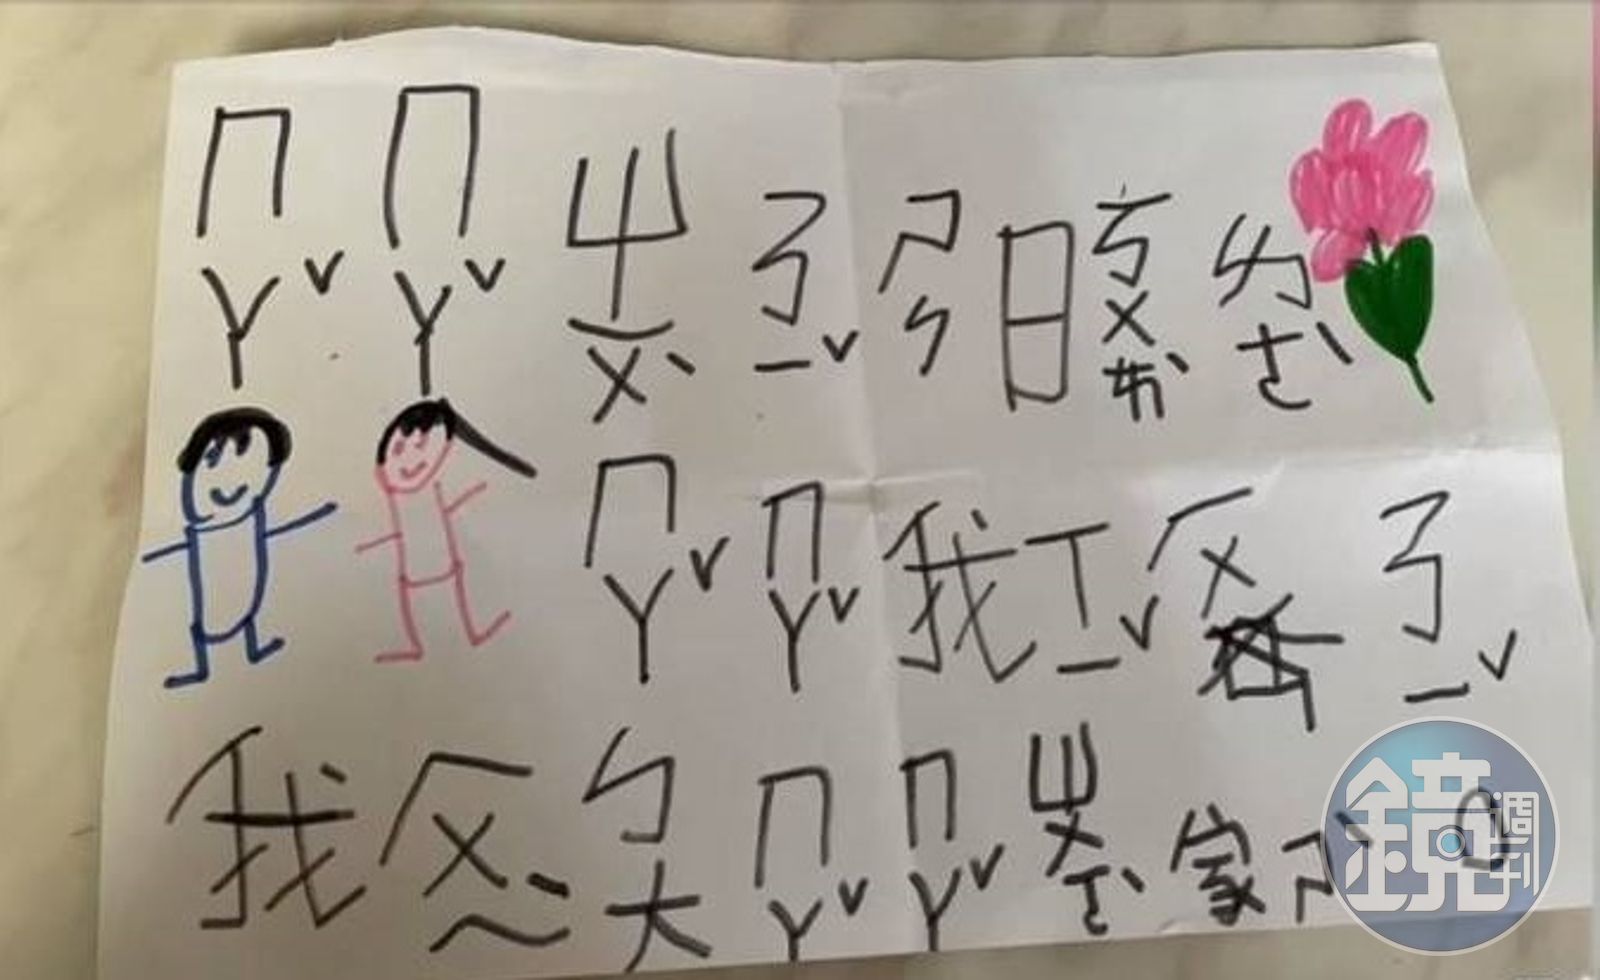 ㄇㄚˇ ㄇㄚˇ ㄓㄨˋ ㄋㄧˇ ㄕㄣ 日 ㄎㄨㄞˋ ㄌㄜˋ
ㄇㄚˇ ㄇㄚˇ 我 ㄒㄧˇ ㄏㄨ ㄋㄧˇ
我 ㄏㄨㄟˋ ㄅㄤ ㄇㄚˇ ㄇㄚˇ ㄓㄨㄛˋ 家 ㄕˋ
鏡週刊